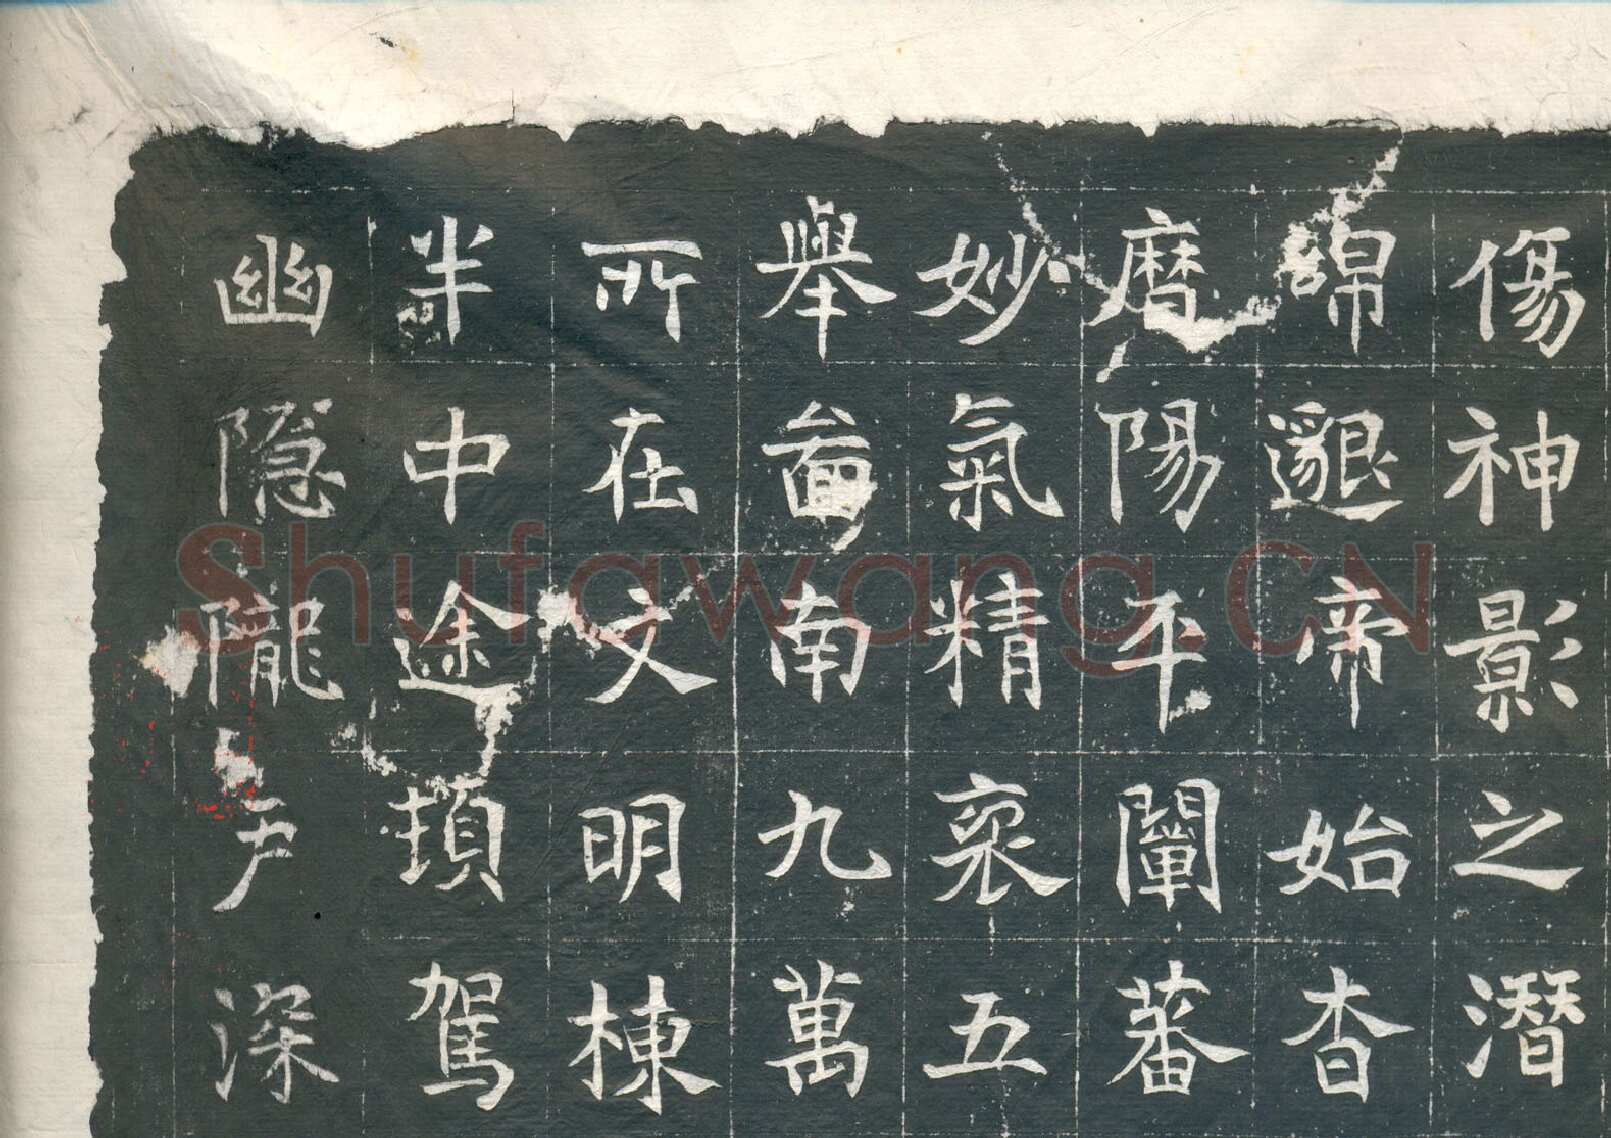 傷神影之潛
綿邈帝始杳
磨陽平闡蕃
妙氣精裒五
舉啚南九萬
所在文明棟
半中途頓駕
幽隱隴戶深
Shufawang.CN